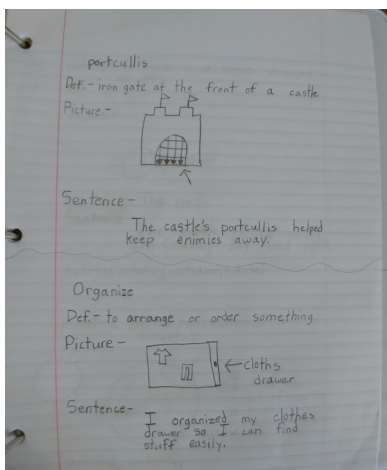 portcullis
Def.- iron gate at the front of a castle
Picture -
Sentence -
The castle's portcullis helped
keep enimies away.
Organize
Def.- to arrange or order something
Picture -
←cloths
drawer
Sentence-
I organized my clothes
drawer so I can find
stuff easily.